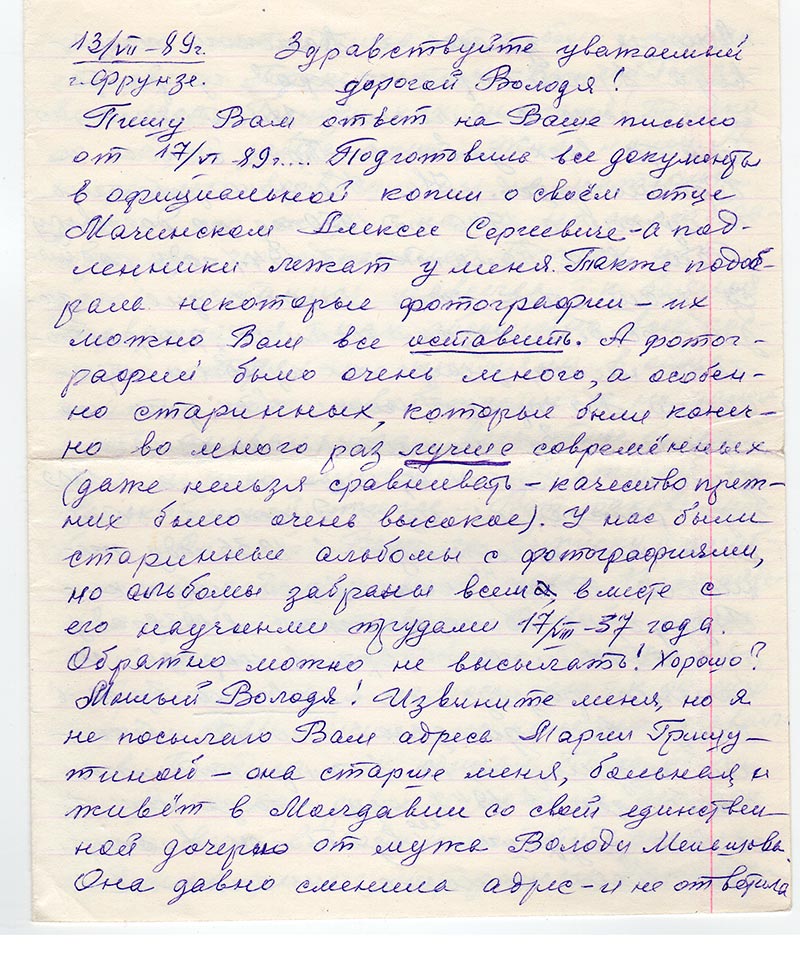 13/VII-89г. Здравствуйте уважаемый
г. Фрунзе. дорогой Володя!
Пишу Вам ответ на Ваше письмо
от 17/VI 89г.... Подготовила все документы
в официальной копии о своём отце
Мачинском Алексее Сергеевиче - а под-
ленники лежат у меня. Также подоб-
рала некоторые фотографии - их
можно Вам все оставить. А фотог-
рафий было очень много, а особен-
но старинных, которые были конеч-
но во много раз лучше современных
(даже нельзя сравнивать - качество преж-
них было очень высокое). У нас были
старинные альбомы с фотографиями,
но альбомы забраны вместе с
его научными трудами 17/VIII-37 года.
Обратно можно не высылать! Хорошо?
Милый Володя! Извините меня, но я
не посылаю Вам адреса Марии Гришу-
тиной - она старше меня, больная и
живёт в Молдавии со своей единствен-
ной дочерью от мужа Володи
Она давно сменила адрес - и не ответила